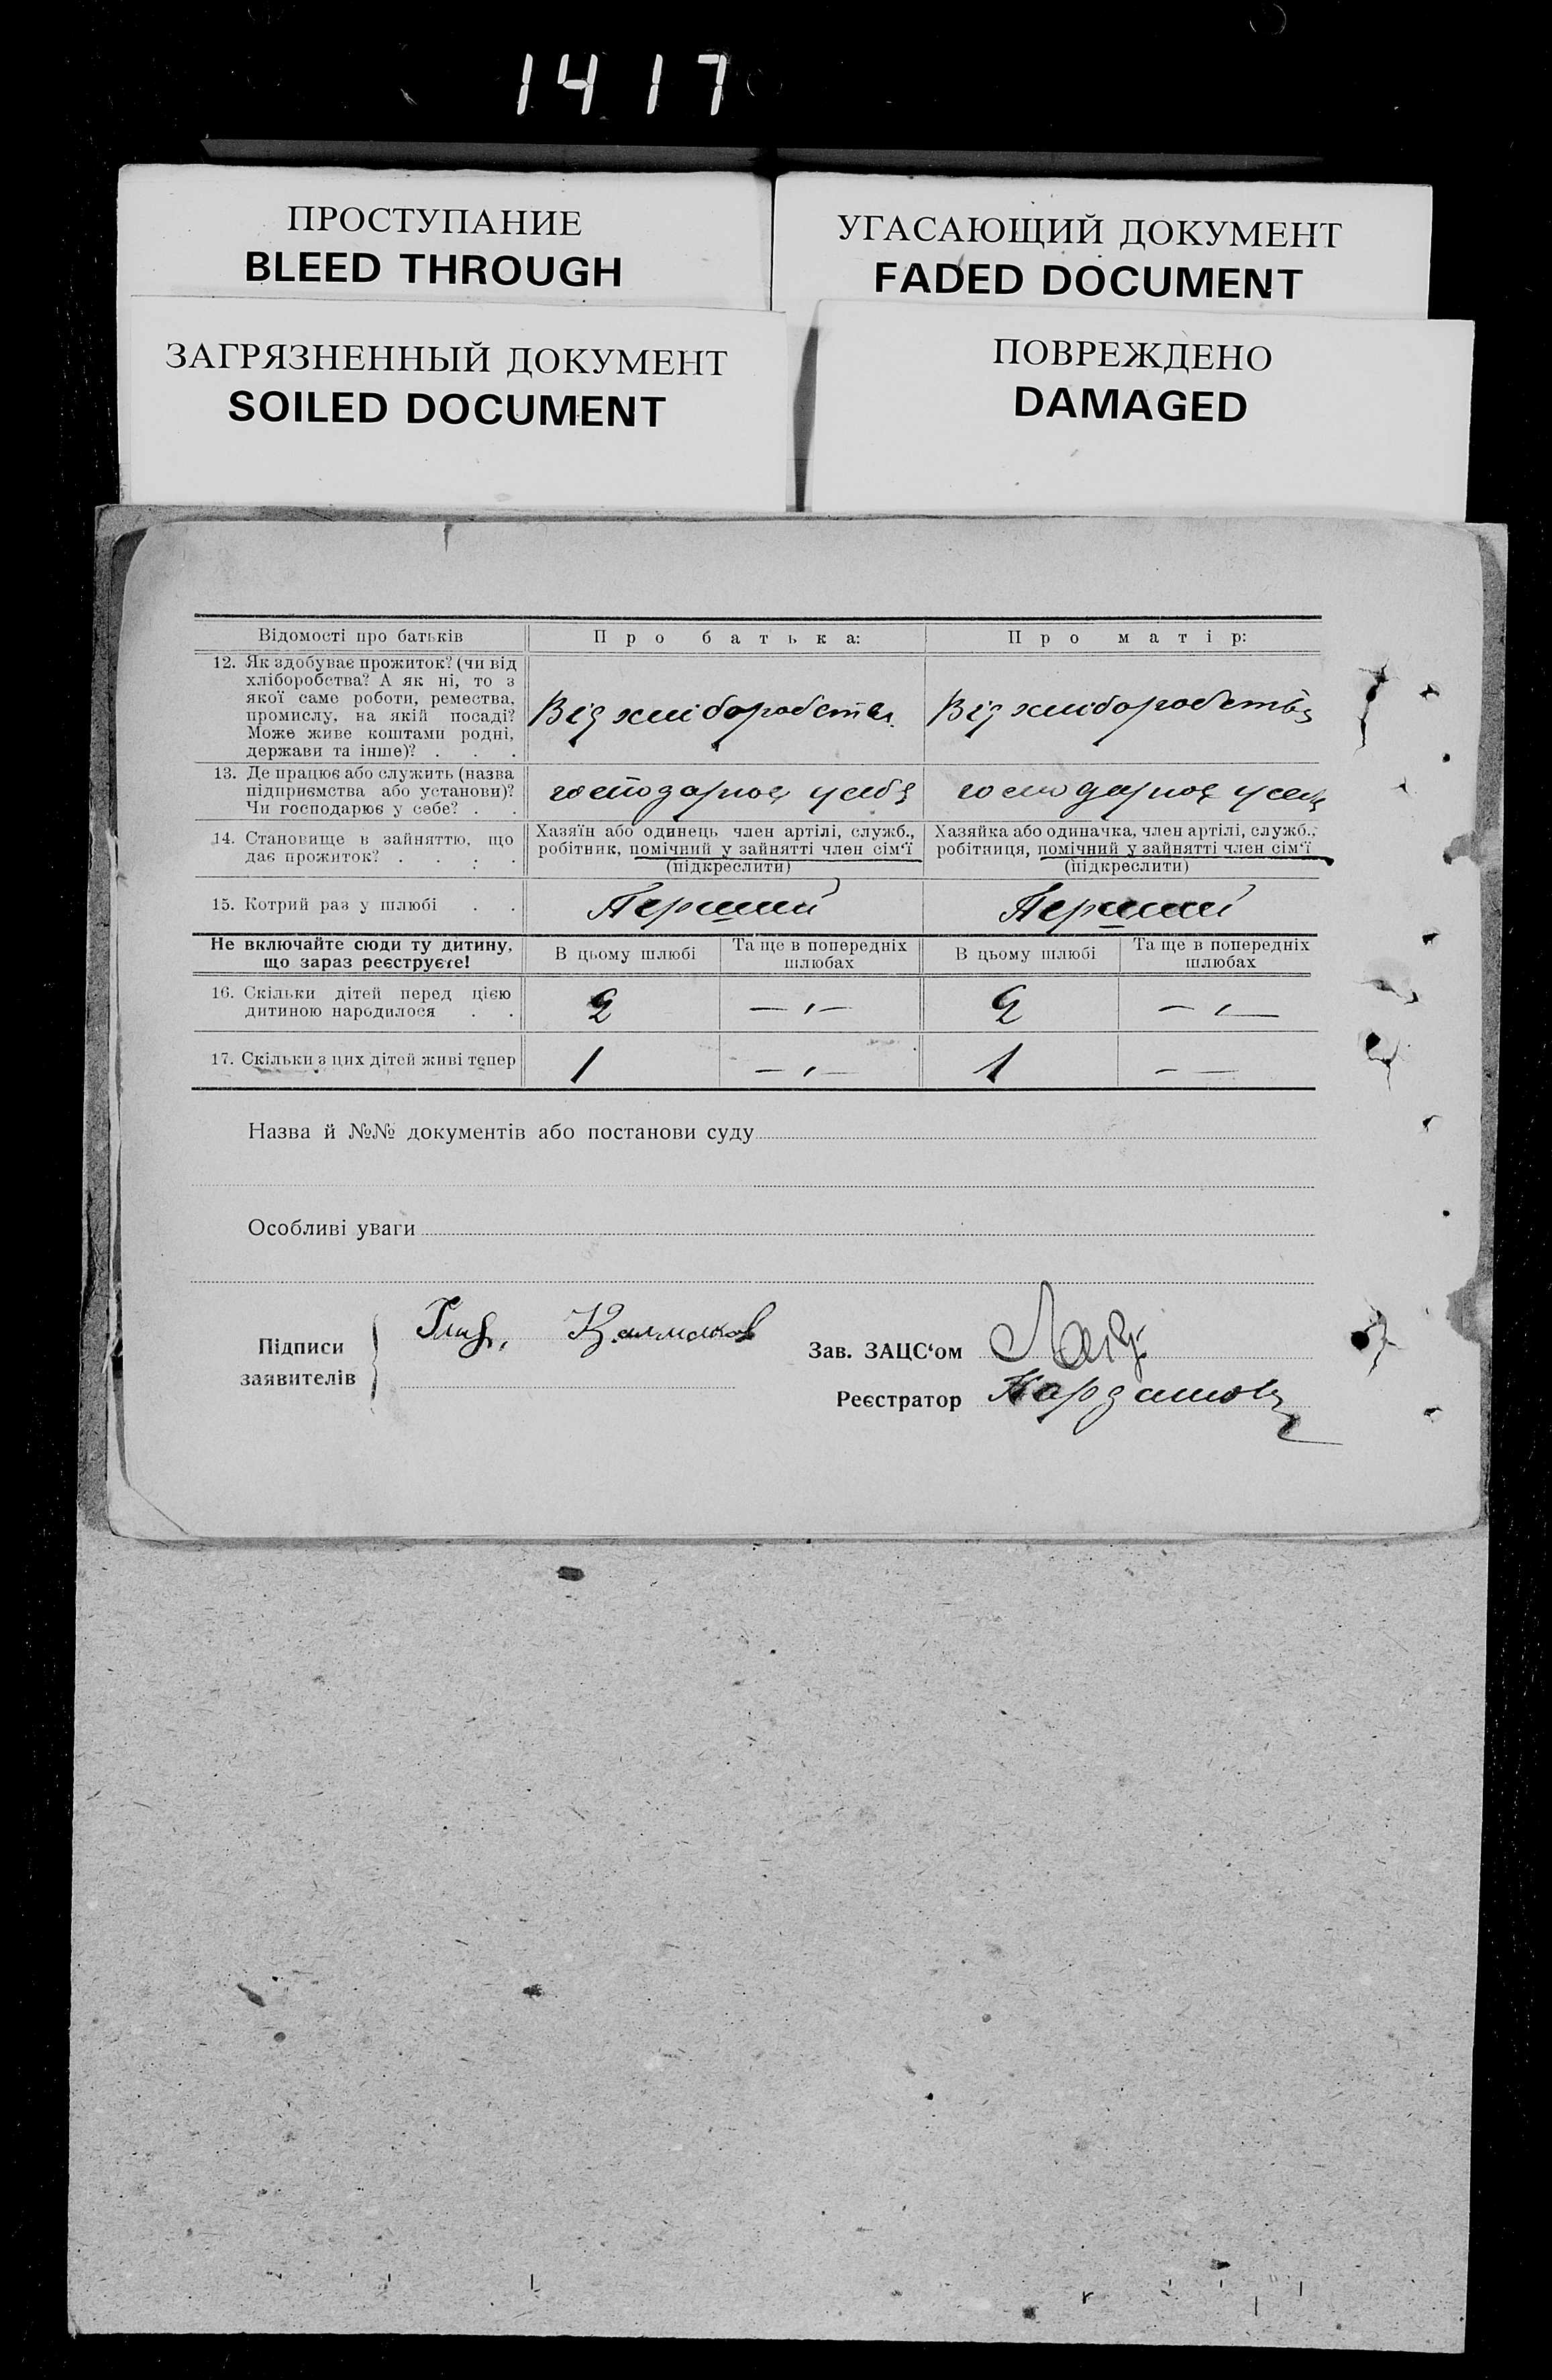 1417
ПРОСТУПАНИЕ
BLEED THROUGH
УГАСАЮЩИЙ ДОКУМЕНТ
FADED DOCUMENT
ЗАГРЯЗНЕННЫЙ ДОКУМЕНТ
SOILED DOCUMENT
ПОВРЕЖДЕНО
DAMAGED
Відомості про батьків
Про батька:
Про матір:
12. Як здобуває прожиток? (чи від
хліборобства? А як ні, то з
якої саме роботи, ремества,
промислу, на якій посаді?
Може живе коштами родні,
держави та інше)? . . .
Від хліборобства
Від хліборобства
13. Де працює або служить (назва
підприємства або установи)?
Чи господарює у себе? . .
господарює у себе
господарює у себе
14. Становище в зайняттю, що
дає прожиток? . . . .
Хазяїн або одинець член артілі, служб.,
робітник, помічний у зайнятті член сім‘ї
(підкреслити)
Хазяйка або одиначка, член артілі, служб.,
робітниця, помічний у зайнятті член сім‘ї
(підкреслити)
15. Котрий раз у шлюбі . .
Перший
Перший
Не включайте сюди ту дитину,
що зараз реєструєте!
В цьому шлюбі
Та ще в попередніх
шлюбах
В цьому шлюбі
Та ще в попередніх
шлюбах
16. Скільки дітей перед цією
дитиною народилося . .
2
— ‚ —
2
— ‚ —
17. Скільки з цих дітей живі тепер
1
— ‚ —
1
— —
Назва й №№ документів або постанови суду
Особливі уваги
Підписи
заявителів
Зав. ЗАЦС‘ом
Реєстратор